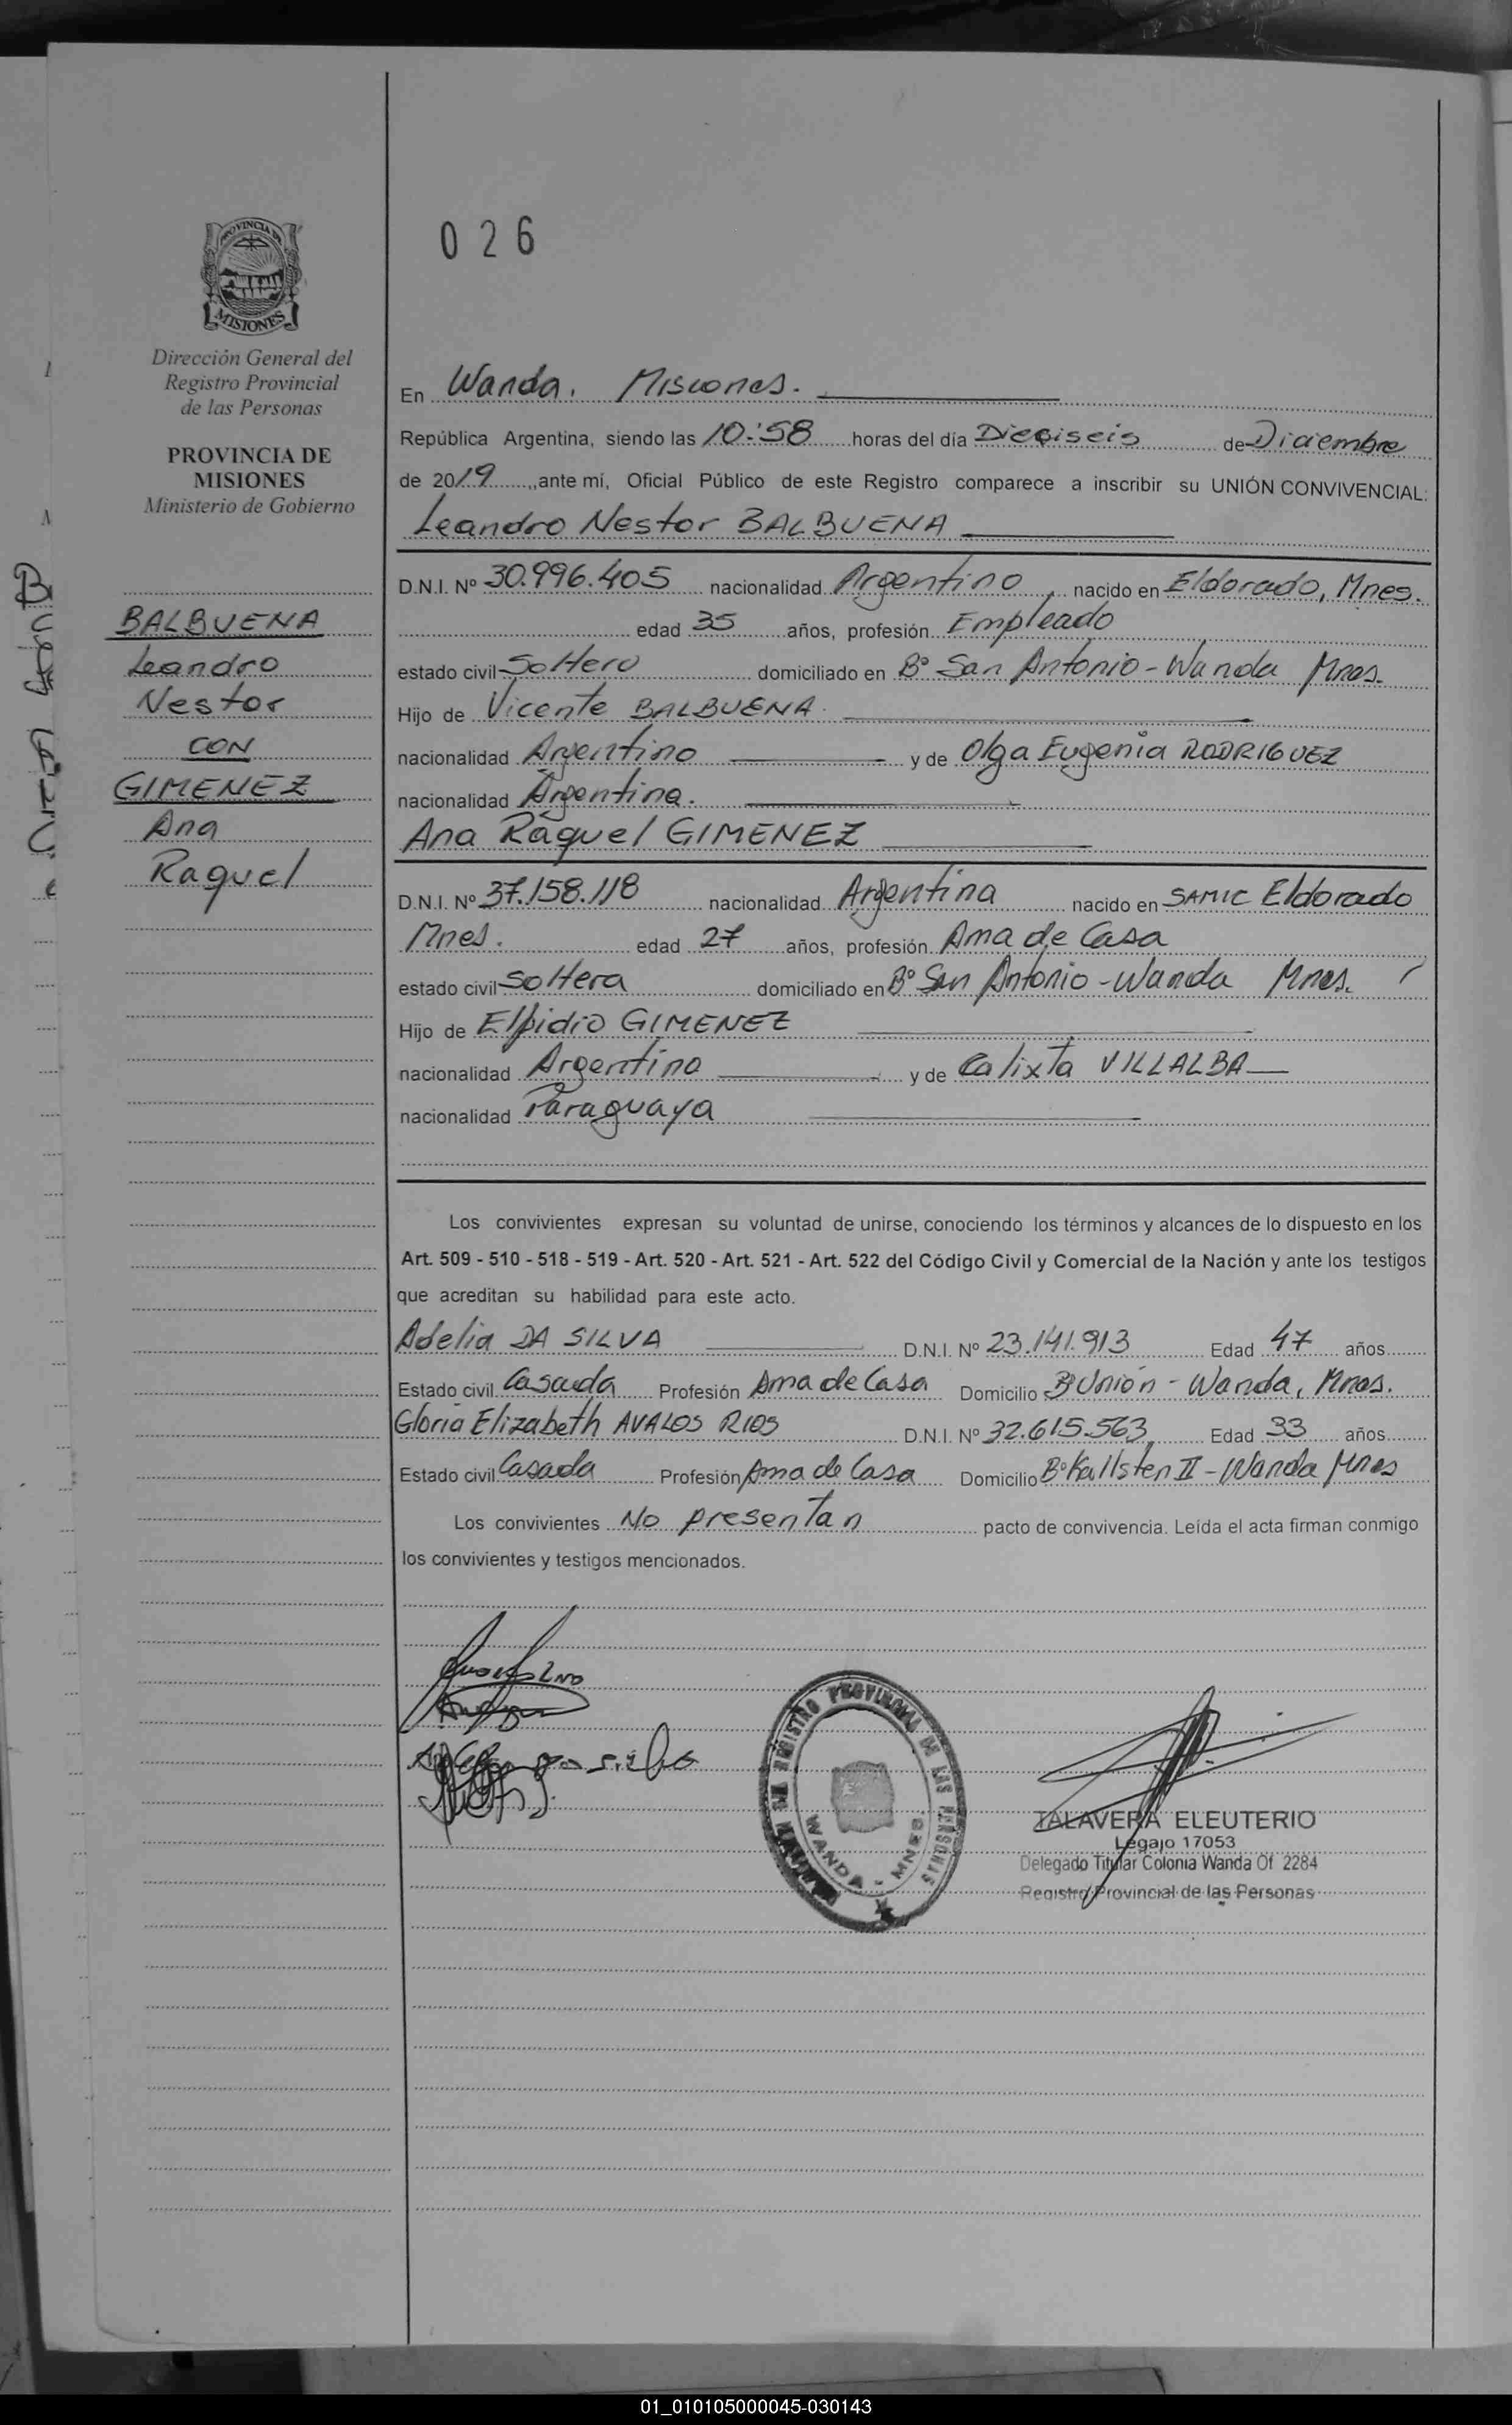 026
PROVINCIA DE
MISIONES
Dirección General del
Registro Provincial
de las Personas
PROVINCIA DE
MISIONES
Ministerio de Gobierno
BALBUENA
Leandro
Nestor
CON
GIMENEZ
Ana
Raquel
En Wanda. Misiones.
República Argentina, siendo las 10:58 horas del día Dieciseis de Diciembre
de 2019, ante mí, Oficial Público de este Registro comparece a inscribir su UNIÓN CONVIVENCIAL:
Leandro Nestor BALBUENA
D.N.I. Nº 30.996.405 nacionalidad Argentino nacido en Eldorado, Mnes.
edad 35 años, profesión Empleado
estado civil Soltero domiciliado en Bº San Antonio - Wanda Mnes.
Hijo de Vicente BALBUENA
nacionalidad Argentino y de Olga Eugenia RODRIGUEZ
nacionalidad Argentina.
Ana Raquel GIMENEZ
D.N.I. Nº 37.158.118 nacionalidad Argentina nacido en SAMIC Eldorado
Mnes. edad 27 años, profesión Ama de Casa
estado civil Soltera domiciliado en Bº San Antonio - Wanda Mnes.
Hijo de Elpidio GIMENEZ
nacionalidad Argentino y de Calixta VILLALBA
nacionalidad Paraguaya
Los convivientes expresan su voluntad de unirse, conociendo los términos y alcances de lo dispuesto en los
Art. 509 - 510 - 518 - 519 - Art. 520 - Art. 521 - Art. 522 del Código Civil y Comercial de la Nación y ante los testigos
que acreditan su habilidad para este acto.
Adelia DA SILVA D.N.I. Nº 23.141.913 Edad 47 años
Estado civil Casada Profesión Ama de Casa Domicilio Bº Unión - Wanda, Mnes.
Gloria Elizabeth AVALOS RIOS D.N.I. Nº 32.615.563 Edad 33 años
Estado civil Casada Profesión Ama de Casa Domicilio Bº Kallsten II - Wanda Mnes
Los convivientes No presentan pacto de convivencia. Leída el acta firman conmigo
los convivientes y testigos mencionados.
REGISTRO PROVINCIAL DE LAS PERSONAS
WANDA - MNES.
TALAVERA ELEUTERIO
Legajo 17053
Delegado Titular Colonia Wanda Of. 2284
Registro Provincial de las Personas
01_010105000045-030143